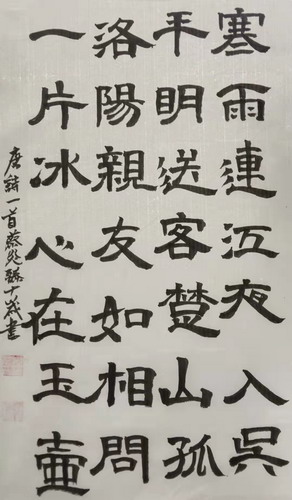 寒雨連江夜入吳
平明送客楚山孤
洛陽親友如相問
一片冰心在玉壺
唐詩一首蔡
十歲書